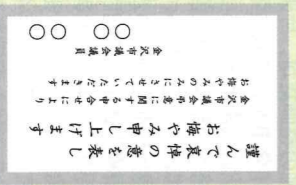 謹んで哀悼の意を表し
お悔やみ申し上げます
金沢市議会弔意に関する申合せにより
お悔やみのみにさせていただきます
金沢市議会議員
○○ ○○